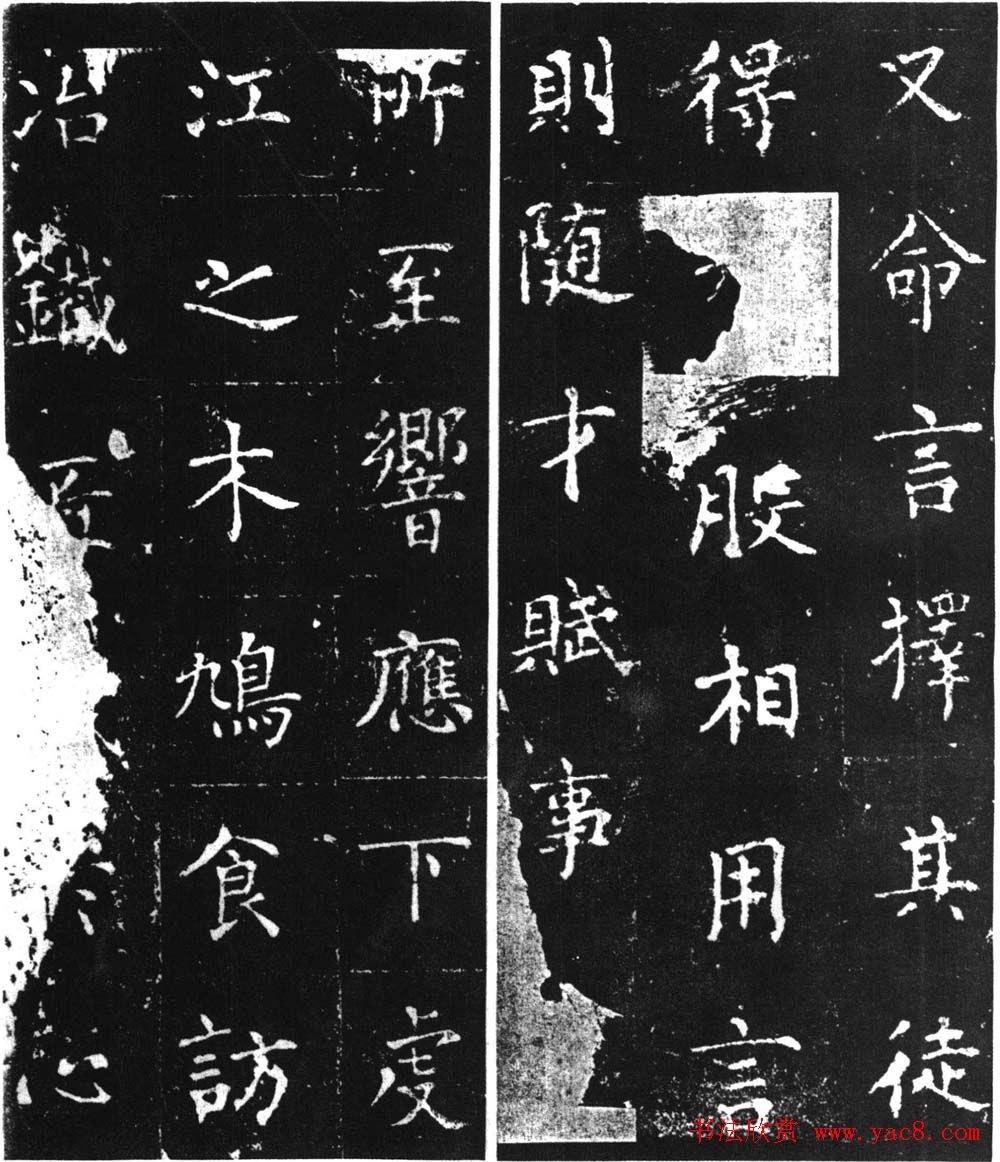 又命言擇其徒
得股相用言
則隨才賦事
所至響應下虔
江之木鳩食訪
冶鐵
心
书法欣赏 www.yac8.com